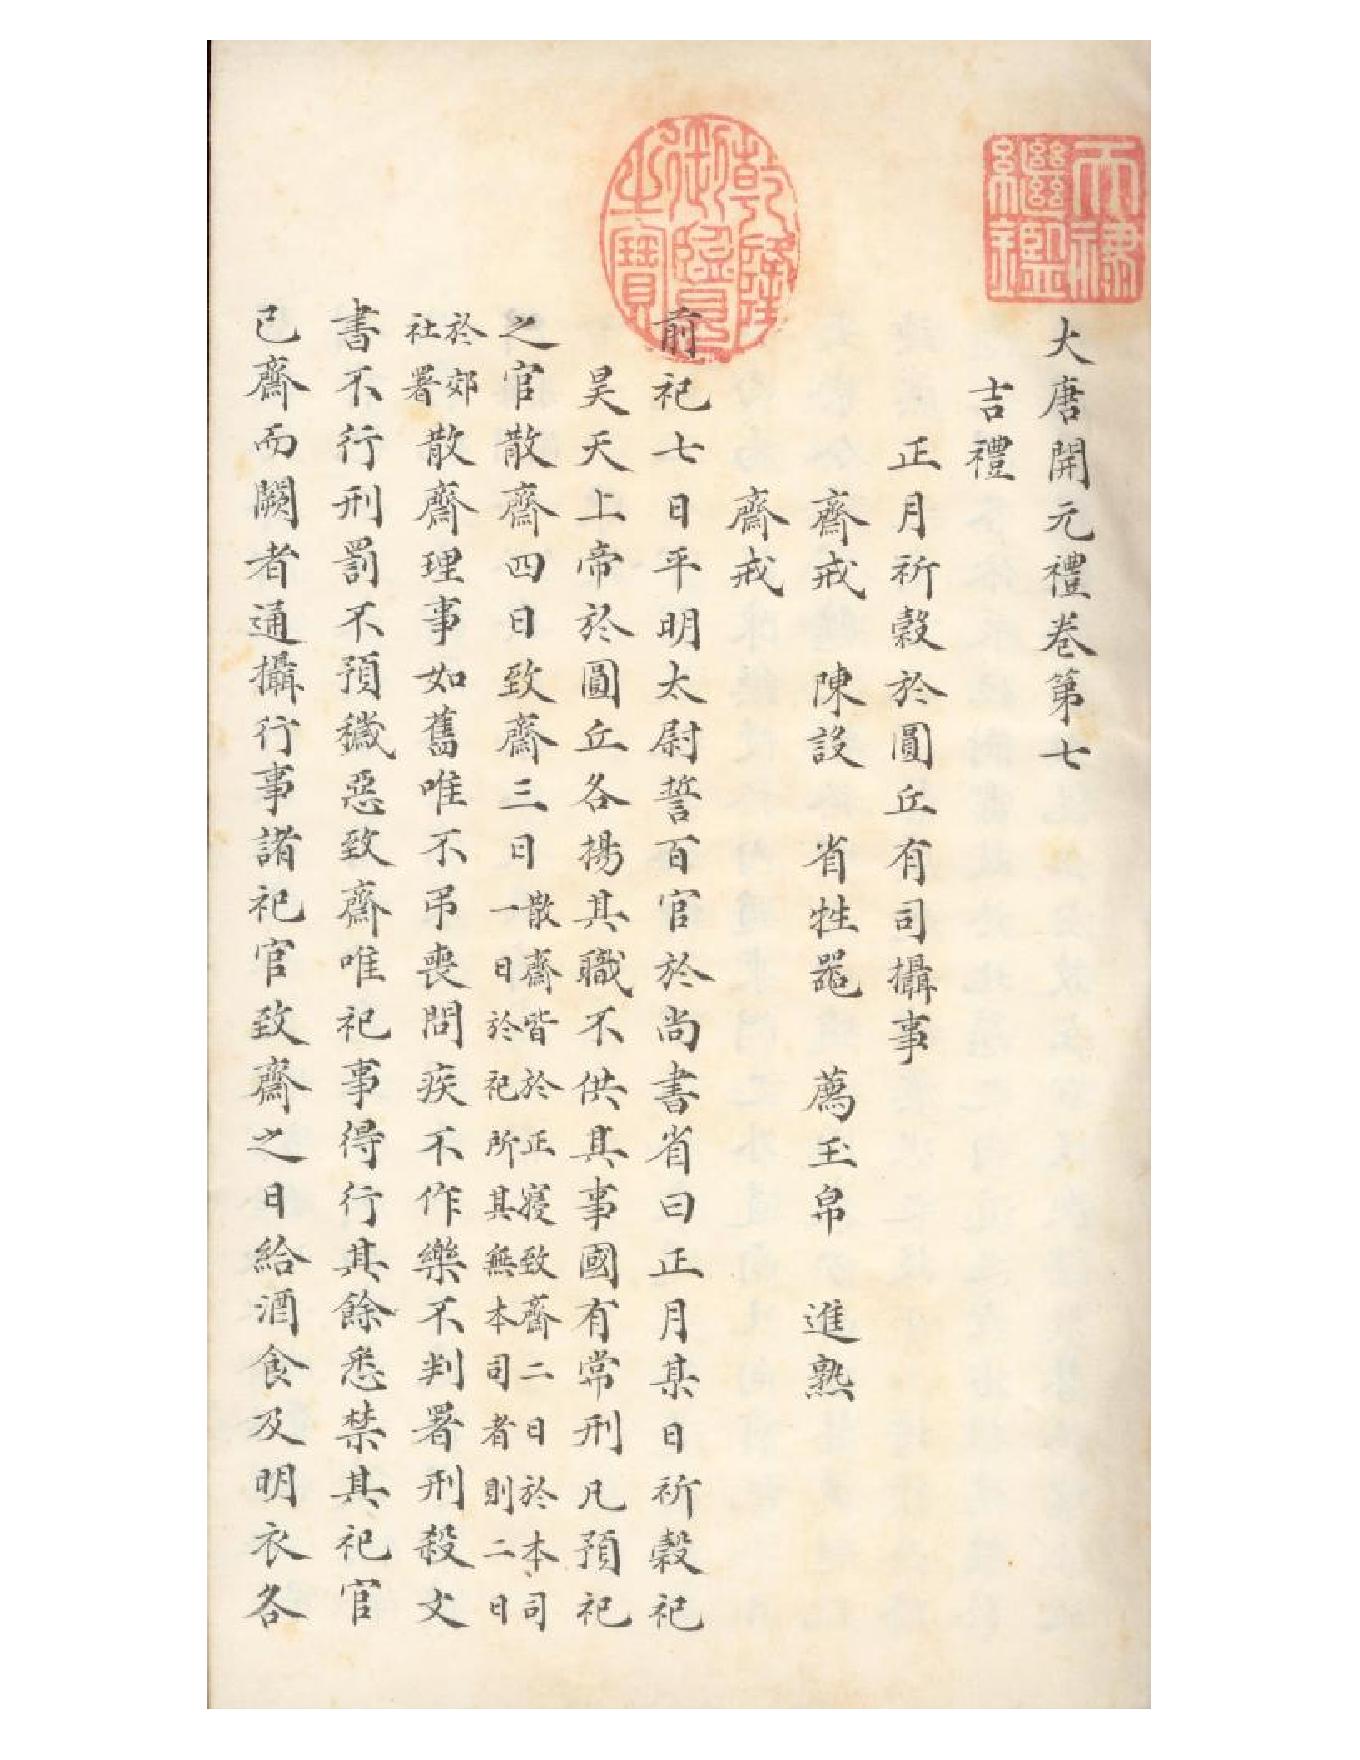 大唐開元禮卷第七
吉禮
正月祈穀於圓丘有司攝事
齋戒 陳設 省牲器 薦玉帛 進熟
齋戒
前祀七日平明太尉誓百官於尚書省曰正月某日祈穀祀
昊天上帝於圓丘各揚其職不供其事國有常刑凡預祀
之官散齋四日致齋三日散齋皆於正寝致齋二日於本司一日於祀所其無本司者則二日
於郊社署散齋理事如舊唯不弔喪問疾不作樂不判署刑殺文
書不行刑罰不預穢惡致齋唯祀事得行其餘悉禁其祀官
已齋而闕者通攝行事諸祀官致齋之日給酒食及明衣各
天祿繼鑑
乾隆御覽之寶